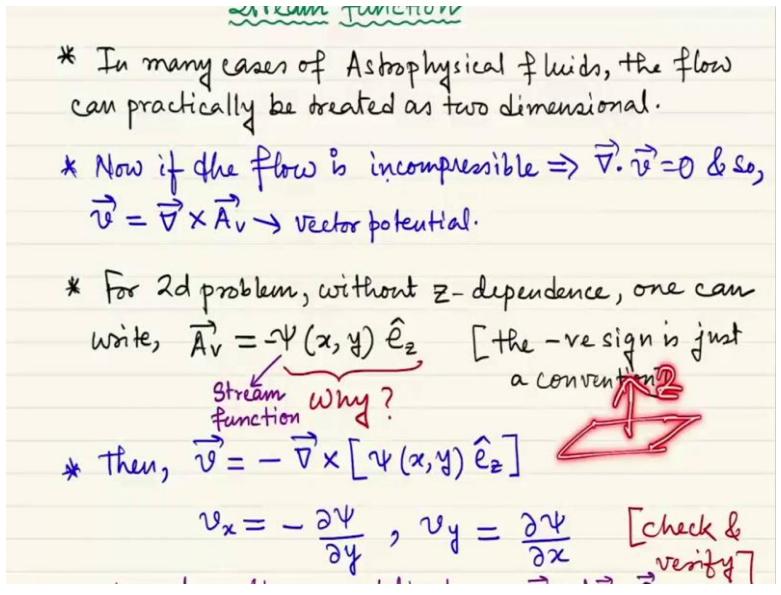 Stream Function
* In many cases of Astrophysical fluids, the flow
can practically be treated as two dimensional.
* Now if the flow is incompressible ⇒ ∇⃗.v⃗=0 & so,
v⃗ = ∇⃗ × A⃗ᵥ → vector potential.
* For 2d problem, without z-dependence, one can
write, A⃗ᵥ = -Ψ(x, y) ê_z [the -ve sign is just
a convention]
Stream function Why? z
* Then, v⃗ = - ∇⃗ × [Ψ(x, y) ê_z]
v_x = - ∂Ψ/∂y , v_y = ∂Ψ/∂x [check &
verify]